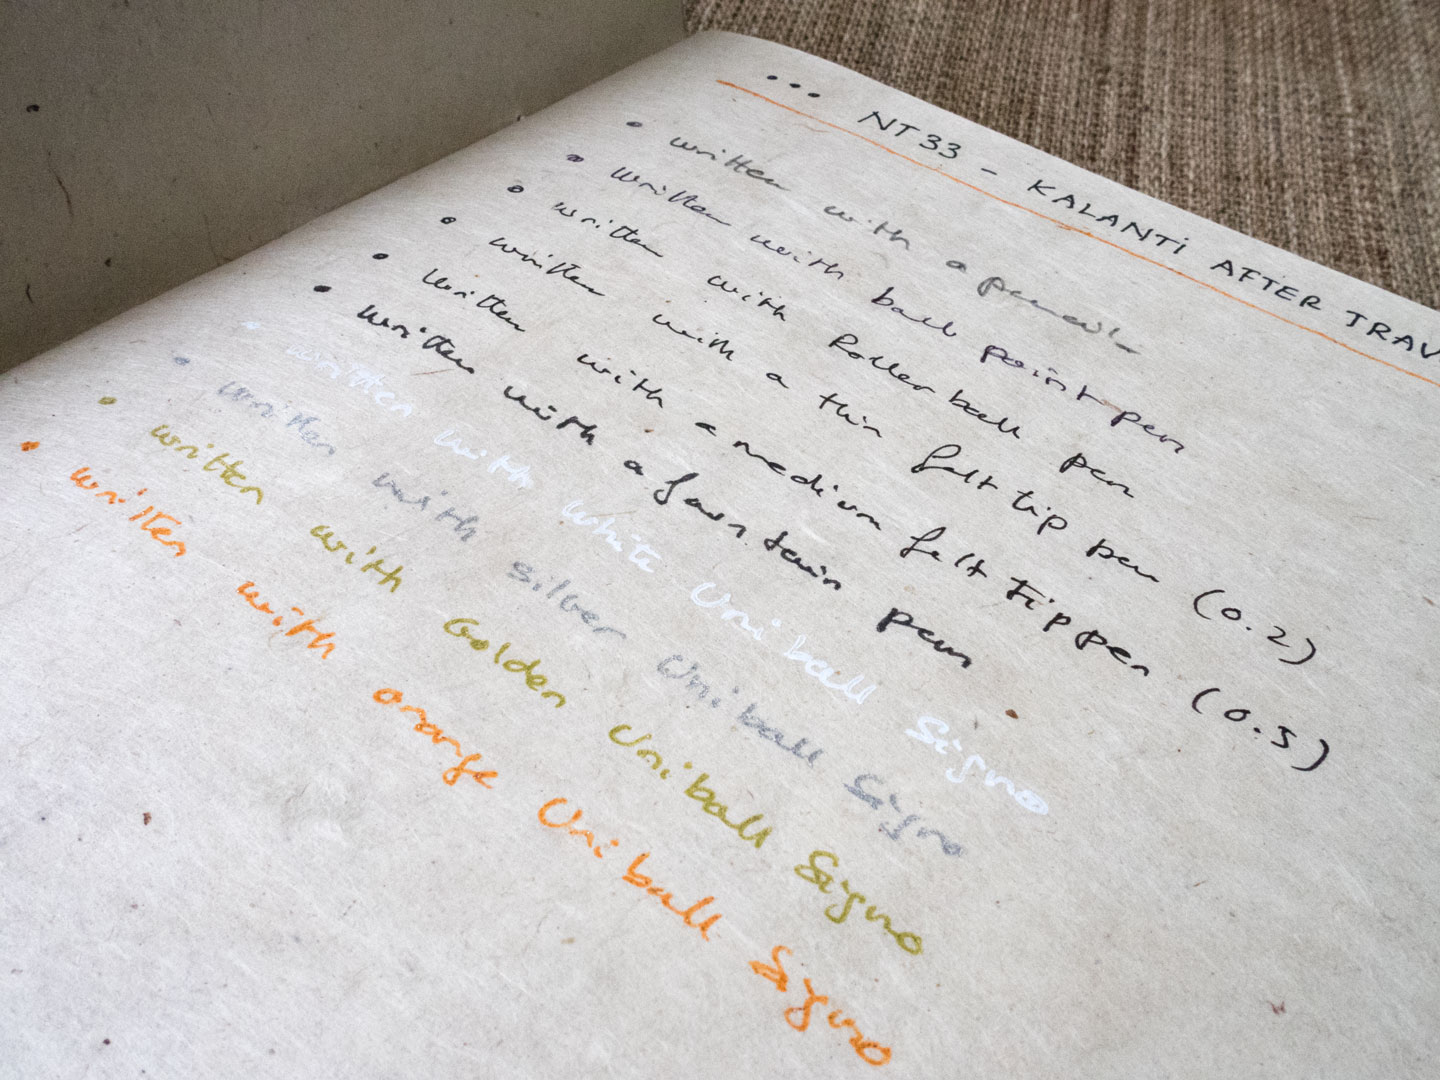 ... NT33 - KALANTi AFTER TRAV
• written with a pencil
• written with ball point pen
• written with Rollerball pen
• written with a thin felt tip pen (0.2)
• written with a medium felt tip pen (0.5)
• written with a fountain pen
• written with white Uniball Signo
• written with silver Uniball Signo
• written with Golden Uniball Signo
• written with orange Uniball Signo